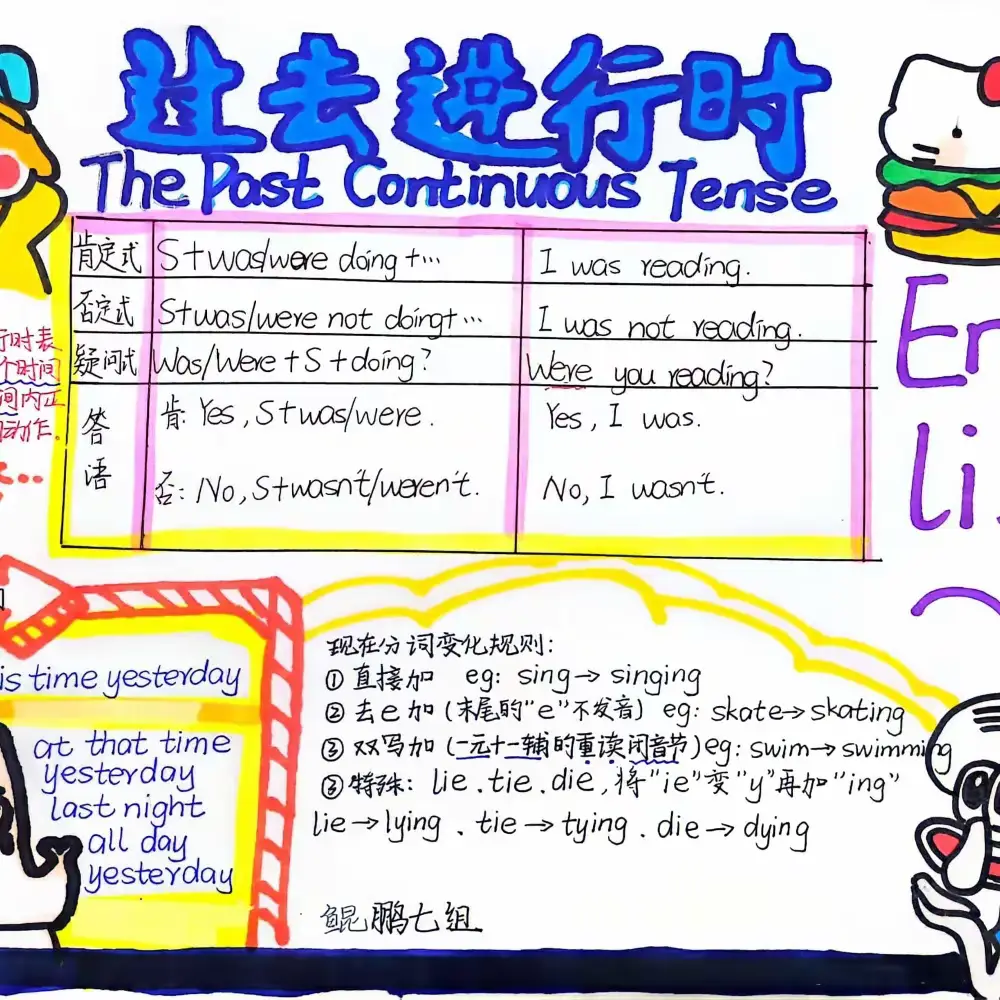 过去进行时
The Past Continuous Tense
肯定式 S+was/were doing+… I was reading.
否定式 S+was/were not doing+… I was not reading.
疑问式 Was/Were+S+doing? Were you reading?
答语 肯: Yes, S+was/were. Yes, I was.
否: No, S+wasn't/weren't. No, I wasn't.
行时表
个时间
间内正
动作.
En
lis
is time yesterday
at that time
yesterday
last night
all day
yesterday
现在分词变化规则:
① 直接加 eg: sing→singing
② 去e加(末尾的"e"不发音) eg: skate→skating
③ 双写加(一元十一辅的重读闭音节) eg: swim→swimming
③ 特殊: lie.tie.die,将"ie"变"y"再加"ing"
lie→lying . tie→tying . die→dying
鲲鹏七组